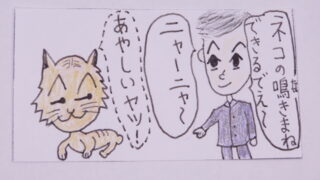 ネコの鳴きまね
な
できるでぇ〜
ニャーニャ〜
あやしいヤツ!